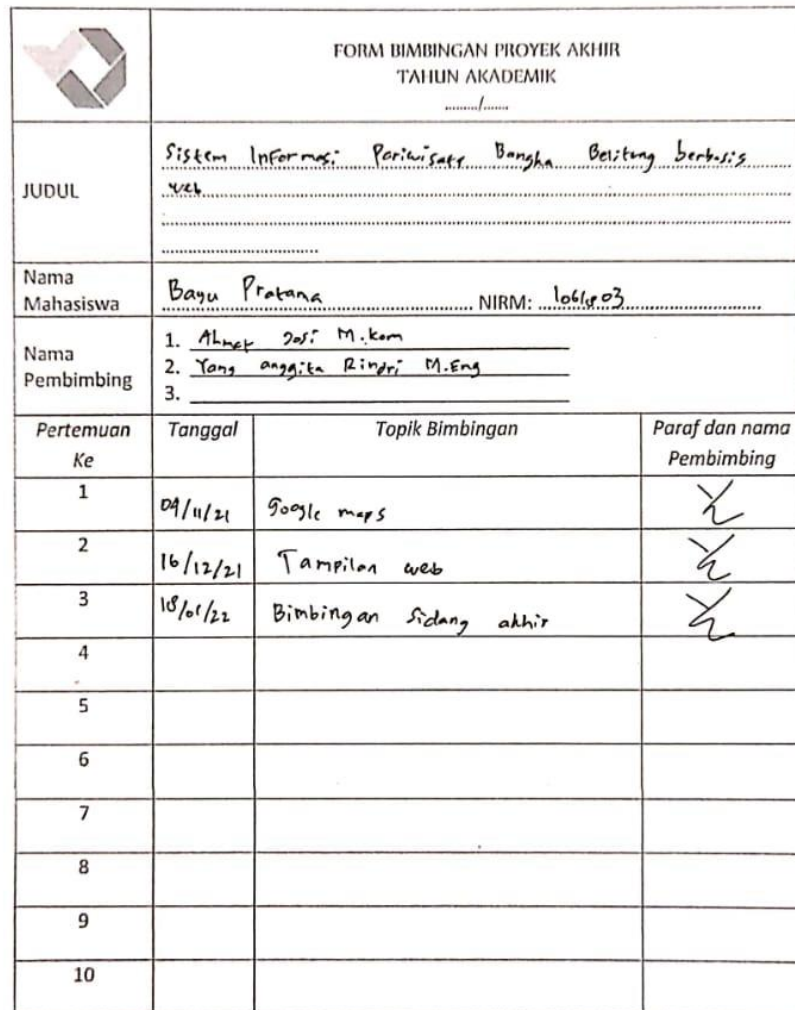 FORM BIMBINGAN PROYEK AKHIR
TAHUN AKADEMIK
........./.......
JUDUL
Sistem Informasi Pariwisata Bangka Belitung berbasis
web
Nama
Mahasiswa
Bayu Pratama NIRM:
Nama
Pembimbing
1. Ahmat Josi M.kom
2. Yang anggita Rindri M.Eng
3.
Pertemuan Ke Tanggal Topik Bimbingan Paraf dan nama Pembimbing
1 04/11/21 Google maps
2 16/12/21 Tampilan web
3 18/01/22 Bimbingan Sidang akhir
4
5
6
7
8
9
10